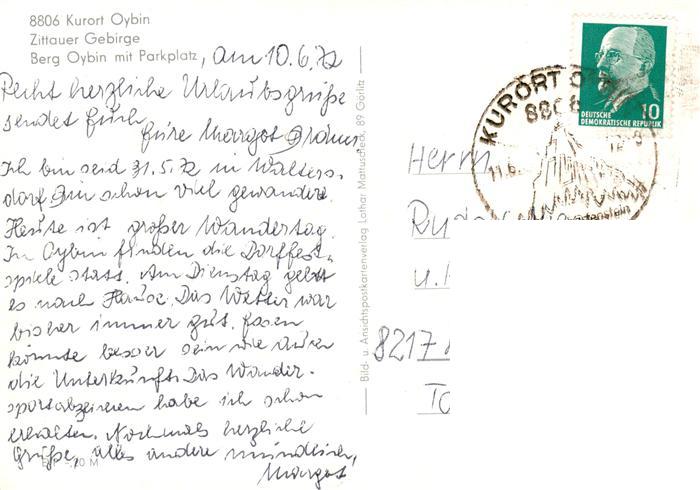 8806 Kurort Oybin
Zittauer Gebirge
Berg Oybin mit Parkplatz, am 10.6.72
Recht herzliche Urlaubsgrüße
sendet Euch
Eure Margot
Ich bin seid 31.5.72 in Walters-
dorf. Bin schon viel gewandert.
Heute ist großer Wandertag.
In Oybin finden die Dorffest-
spiele statt. Am Dienstag geht
es nach Hause. Das Wetter war
bisher immer gut. Essen
könnte besser sein wie auch
die Unterkunft. Das Wander-
sportabzeichen habe ich schon
erhalten. Nochmals herzliche
Grüße, alles andere mündlich,
Margot
10 M
Bild- u. Ansichtspostkartenverlag Lothar Mattuscheck, 89 Görlitz
KURORT O
8806
11.6.
DEUTSCHE
DEMOKRATISCHE REPUBLIK
10
Herrn
u.
8217